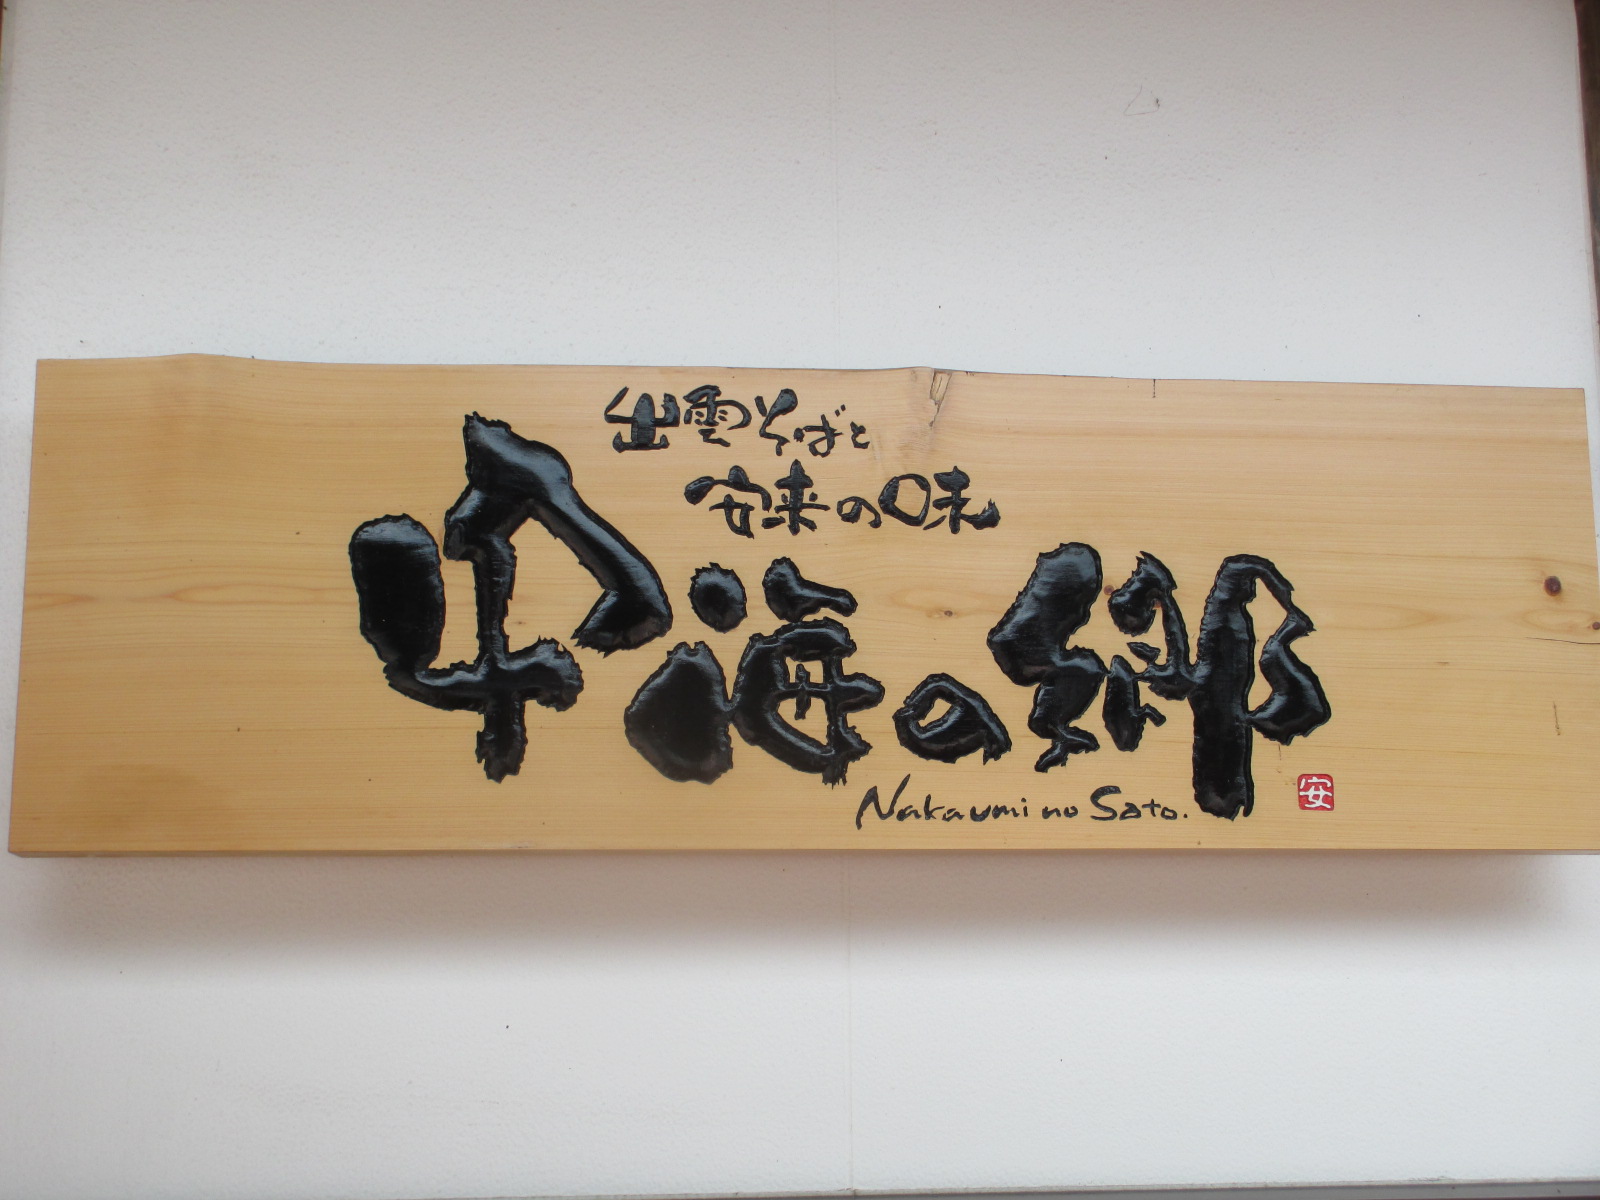 出雲そばと
安来の味
中海の郷
Nakaumi no Sato.
安